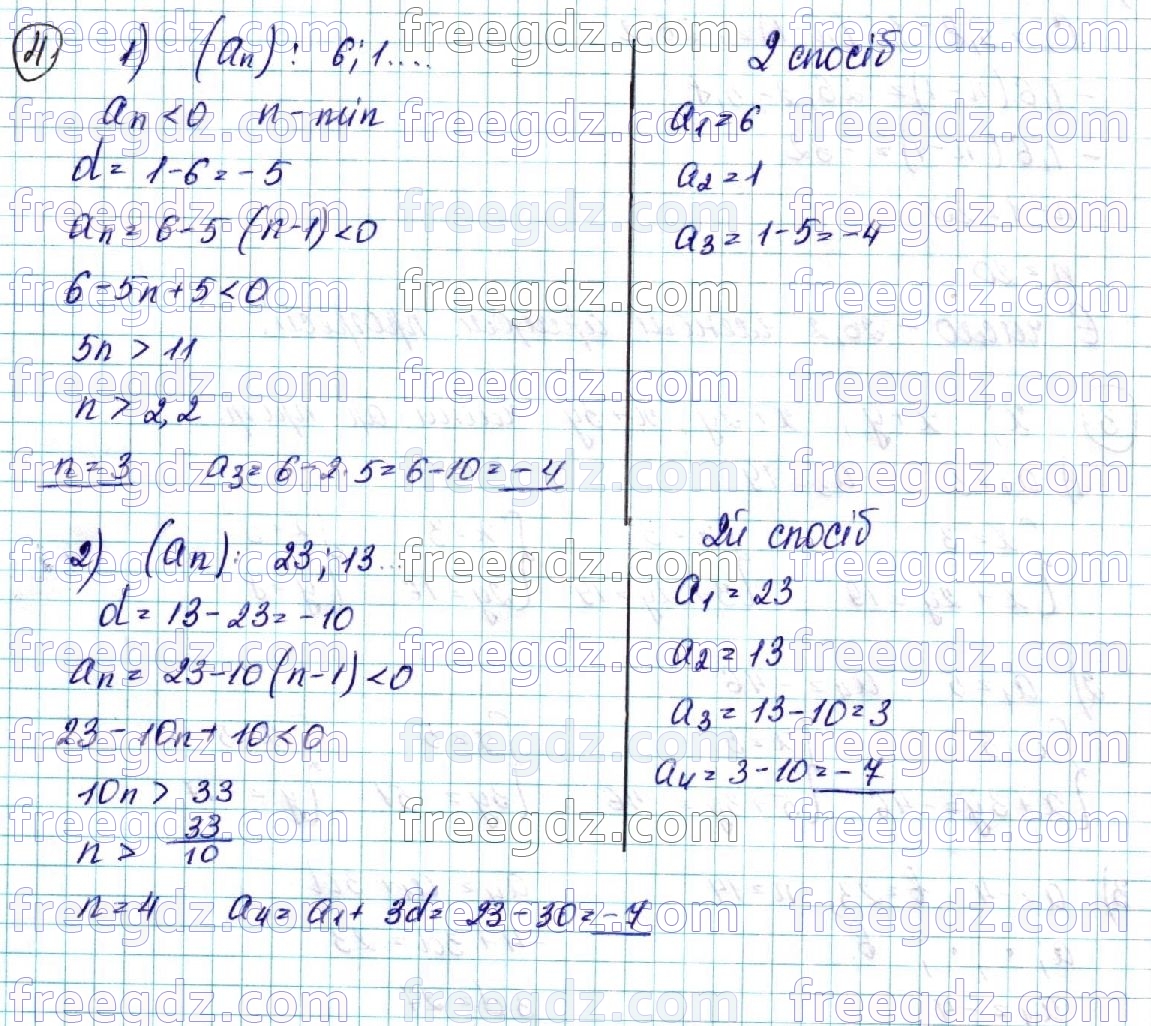 21) 1) (an): 6; 1....
an < 0 n - min
d = 1 - 6 = - 5
an = 6 - 5 (n - 1) < 0
6 - 5n + 5 < 0
5n > 11
n > 2,2
n = 3 a3 = 6 - 2 · 5 = 6 - 10 = - 4
2 спосіб
a1 = 6
a2 = 1
a3 = 1 - 5 = - 4
2) (an): 23; 13...
d = 13 - 23 = - 10
an = 23 - 10 (n - 1) < 0
23 - 10n + 10 < 0
10n > 33
n > 33/10
n = 4 a4 = a1 + 3d = 23 - 30 = - 7
2й спосіб
a1 = 23
a2 = 13
a3 = 13 - 10 = 3
a4 = 3 - 10 = - 7
freegdz.com